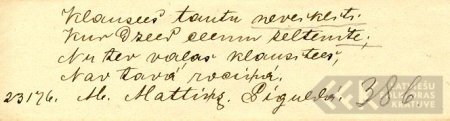 Klausees tautu neveiklit:
Kur Dzeed ceemu zeltenite;
Nu tev vaļas klausitees,
Nav tavá rociņá.
23176. M. Mattisę. Siguldá. 386
LATVIEŠU
FOLKLORAS
KRĀTUVE